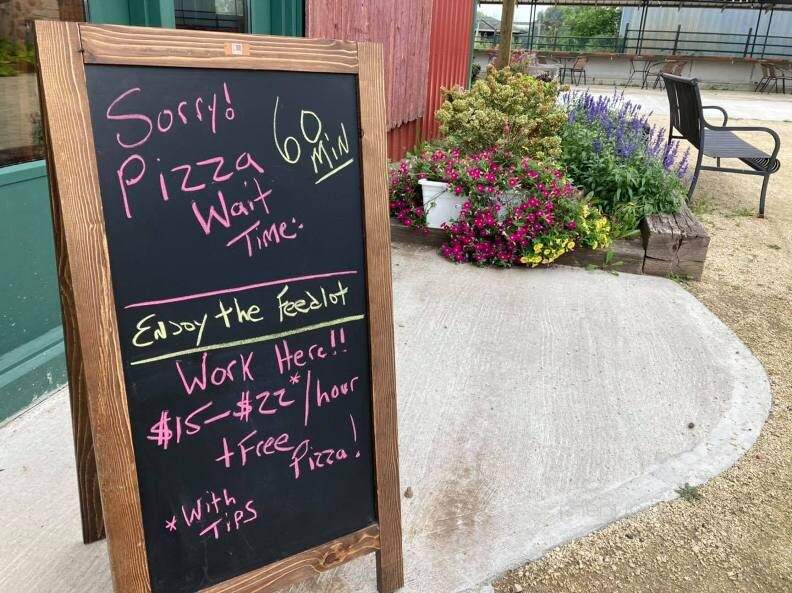 Sorry!
Pizza
Wait
Time:
60
MIN
ENJOY the Feedlot
Work Here!!
$15-$22*/hour
+ Free Pizza!
*With
TIPS